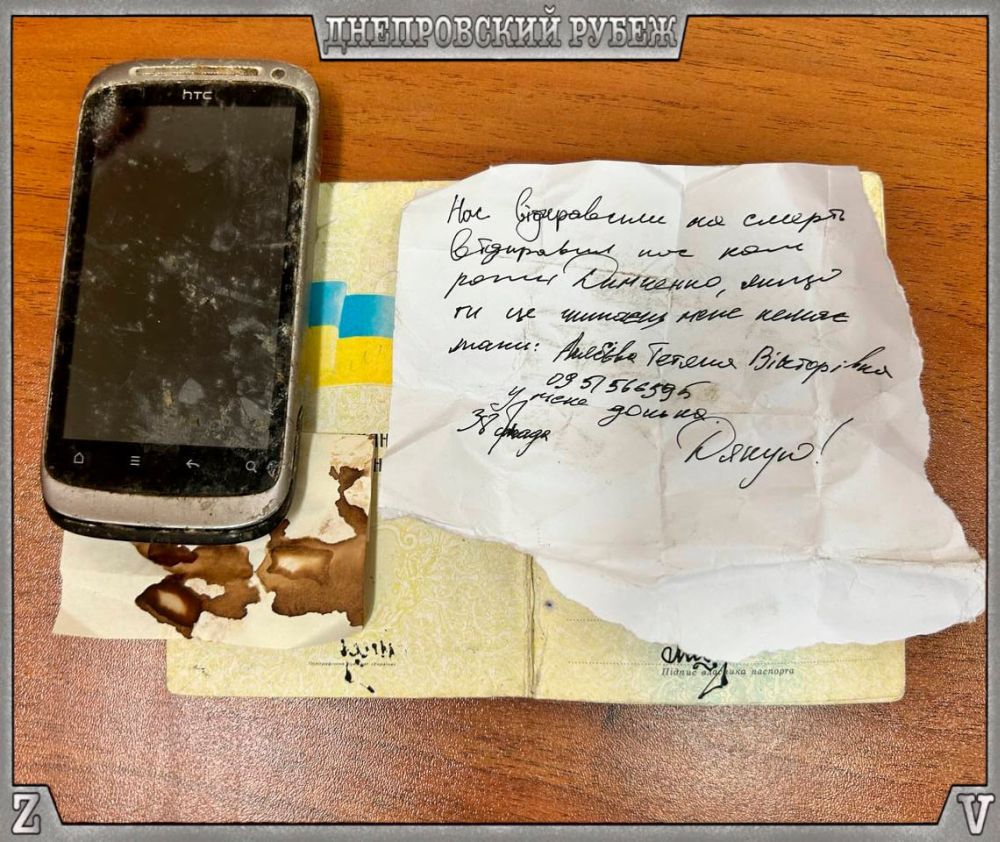 ДНЕПРОВСКИЙ РУБЕЖ
hтc
Нас відправили на смерть
відправив нас ком
роти Димченко, якщо
ти це читаєш мене немає
мами: Тетяна Вікторівна
0951566595
у мене донька
38 бригада
Дякую!
Підпис власника паспорта
Z
V